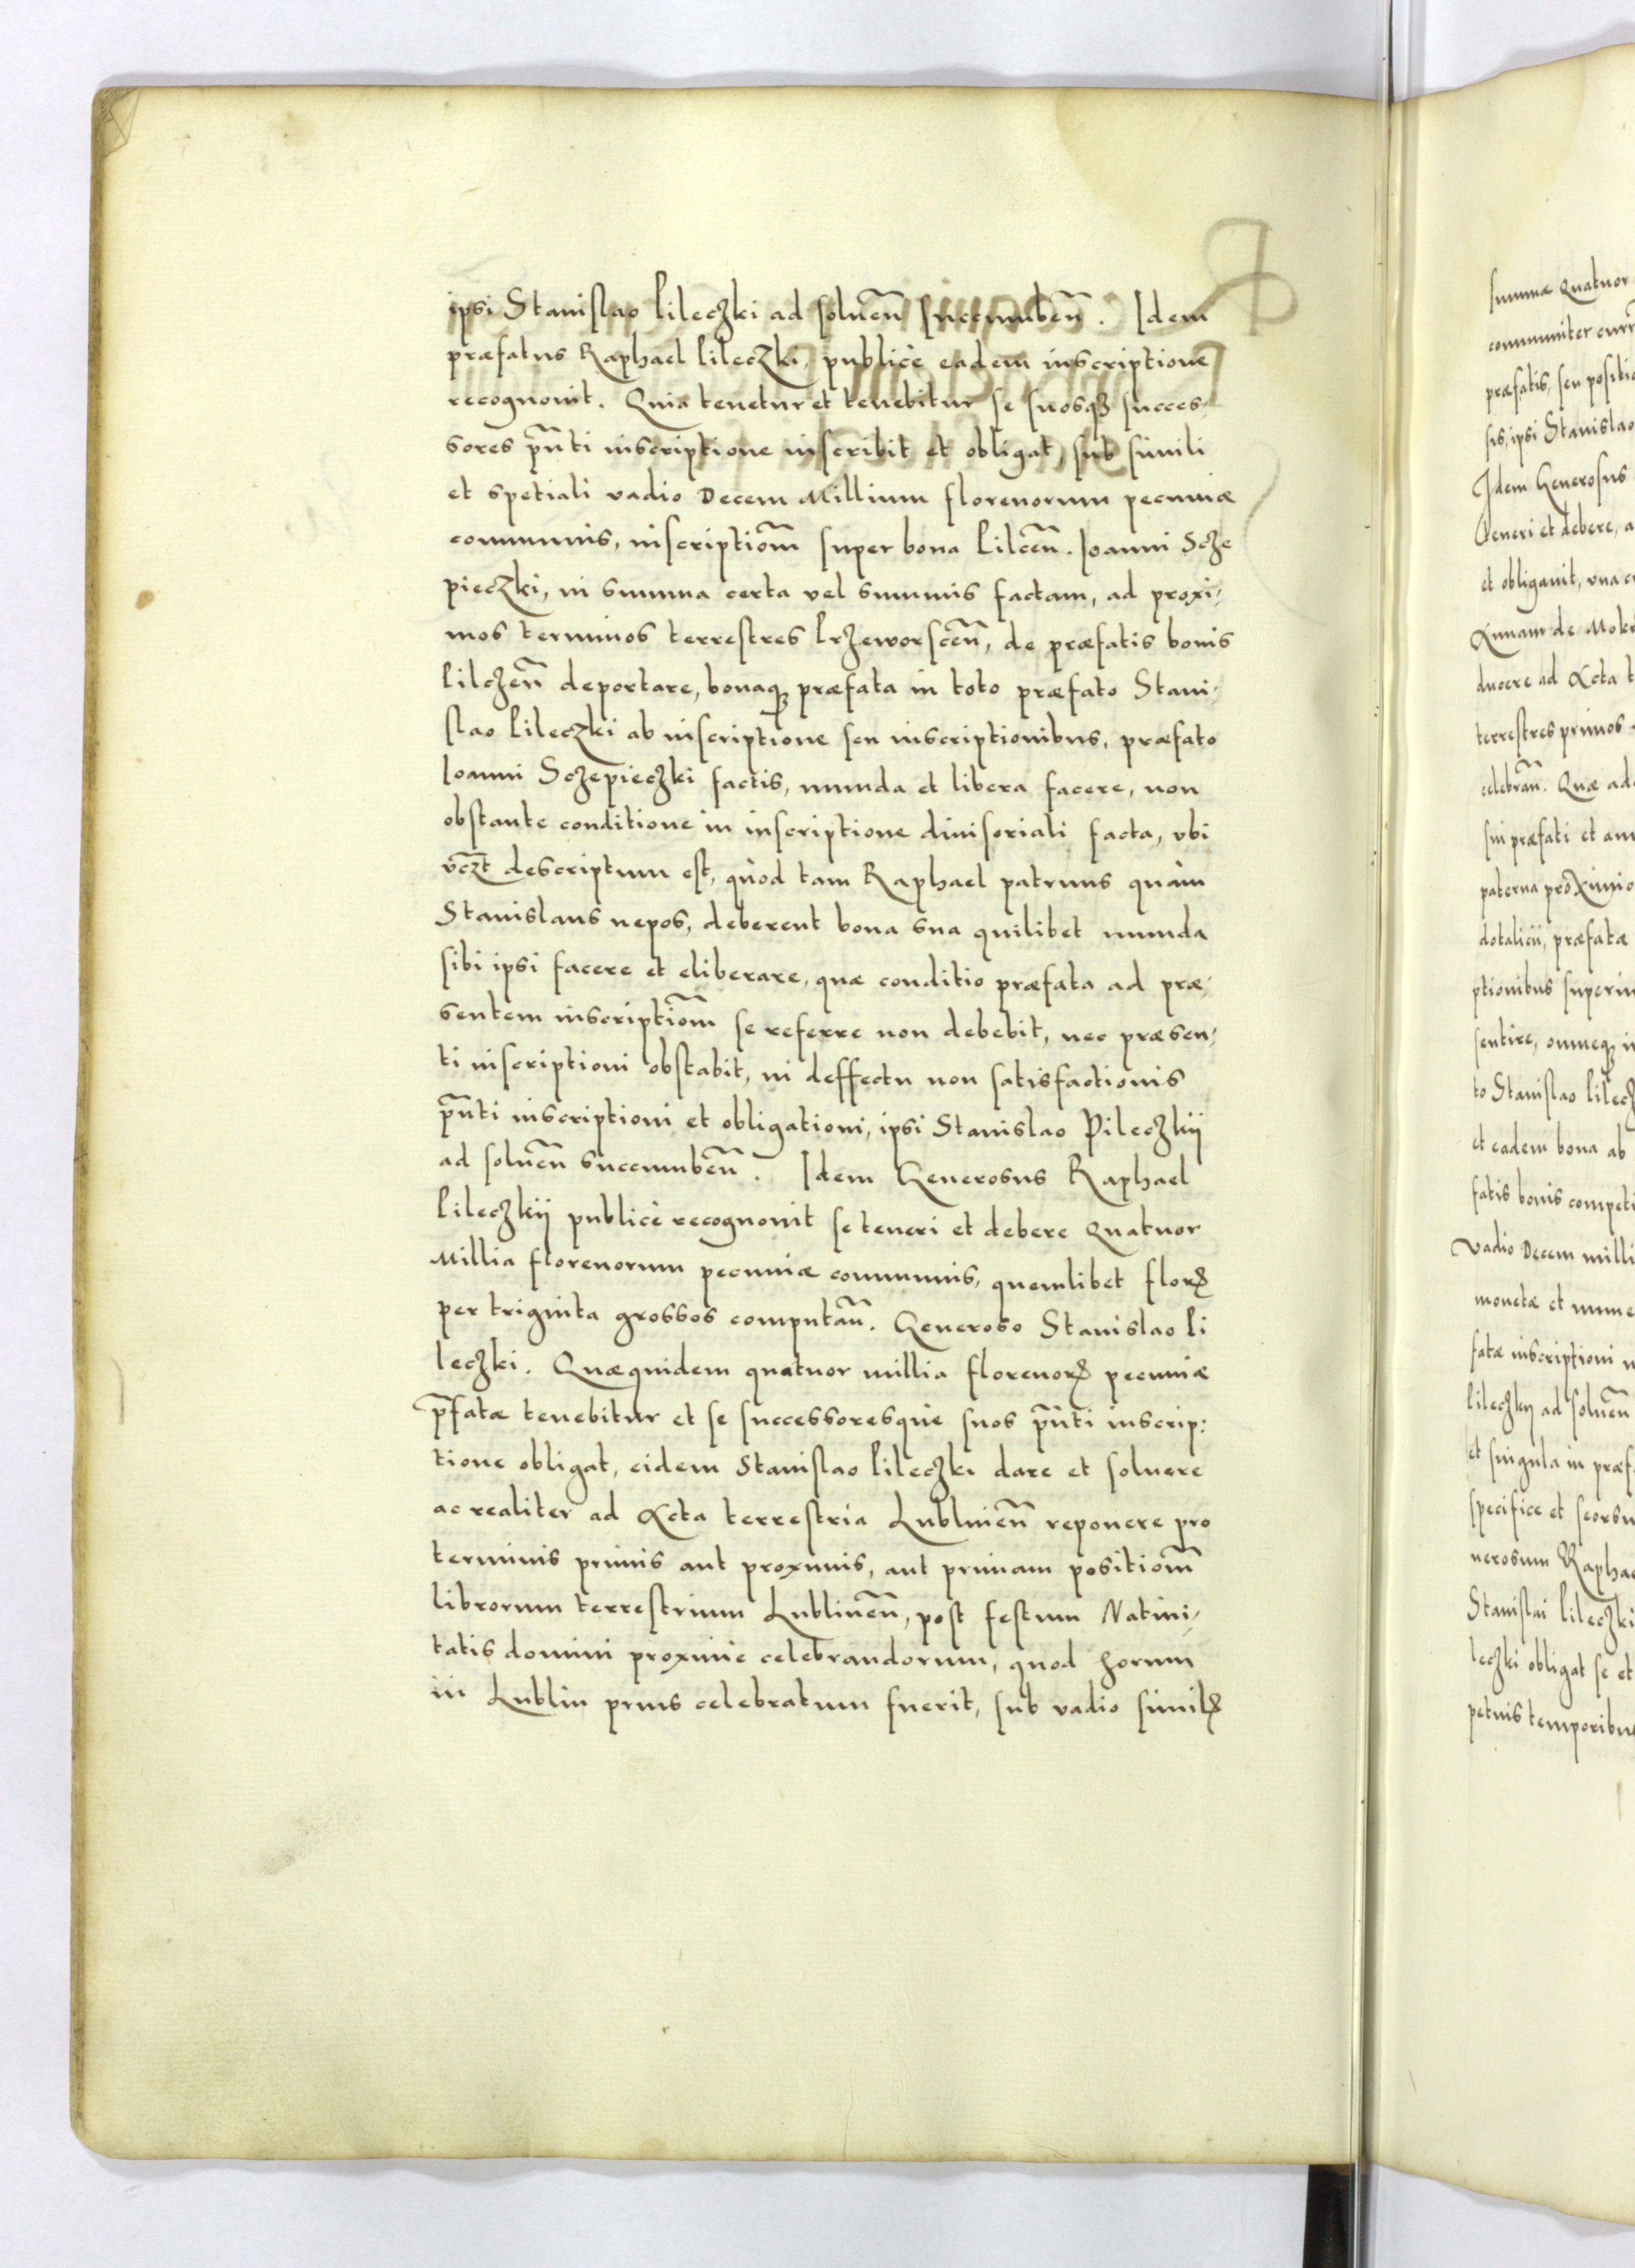 ipsi Stanislao Pileczki ad soluen̄ succumben̄. Idem
præfatus Raphael Pileczki, publicè eadem inscriptione
recognouit. Quia tenetur et tenebitur se suosqꝫ succes-
sores pn̄ti inscriptione inscribit et obligat, sub simili
et spetiali vadio Decem Millium florenorum pecuniæ
communis, inscriptiom̄ super bona Pilcen̄. Ioanni Scze
pieczki, in summa certa vel summis factam, ad proxi-
mos terminos terrestres Przeworscen̄, de præfatis bonis
Pilczen̄ deportare, bonaqꝫ præfata in toto præfato Stani-
slao Pileczki ab inscriptione seu inscriptionibus, præfato
Ioanni Sczepieczki factis, munda et libera facere, non
obstante conditione in inscriptione diuisoriali facta, vbi
vcz̄t descriptum est, quòd tam Raphael patruus quàm
Stanislaus nepos, deberent bona sua quilibet munda
sibi ipsi facere et eliberare, quæ conditio præfata ad præ-
sentem inscriptiom̄ se referre non debebit, nec præsen-
ti inscriptioni obstabit, in deffectu non satisfactionis
pn̄ti inscriptioni et obligationi, ipsi Stanislao Pileczkij
ad soluen̄ succumben̄. Idem Generosus Raphael
Pileczkij publicè recognouit se teneri et debere Quatuor
Millia florenorum pecuniæ communis, quemlibet florꝝ
per triginta grossos computan̄. Generoso Stanislao Pi
leczki. Quæquidem quatuor millia florenorꝝ pecuniæ
p̄fatæ tenebitur et se successoresquè suos pn̄ti inscrip:
tione obligat, eidem Stanislao Pileczki dare et soluere
ac realiter ad Acta terrestria Lublinen̄ reponere pro
terminis primis aut proximis, aut primam positiom̄
librorum terrestrium Lublinen̄, post festum Natiui-
tatis domini proximè celebrandorum, quod horum
in Lublin prius celebratum fuerit, sub vadio similꝝ
summæ Quatuor
communiter curr
præfatis, seu positio
sis, ipsi Stanislao
Idem Generosus
teneri et debere, a
et obligauit, vna c
Annam de Mok
ducere ad Acta t
terrestres primos
celebran̄. Quæ ad
sui præfati et am
paterna proximio
dotalicii, præfatæ
ptionibus superin
sentire, omneqꝫ i
to Stanislao Pilecz
et eadem bona ab
fatis bonis competi
vadio Decem milli
monetæ et nume
fatæ inscriptioni
Pileczkij ad soluen̄
et singula in præf
specifice et seorsu
nerosum Rapha
Stanislai Pileczki
leczki obligat se et
petuis temporibu